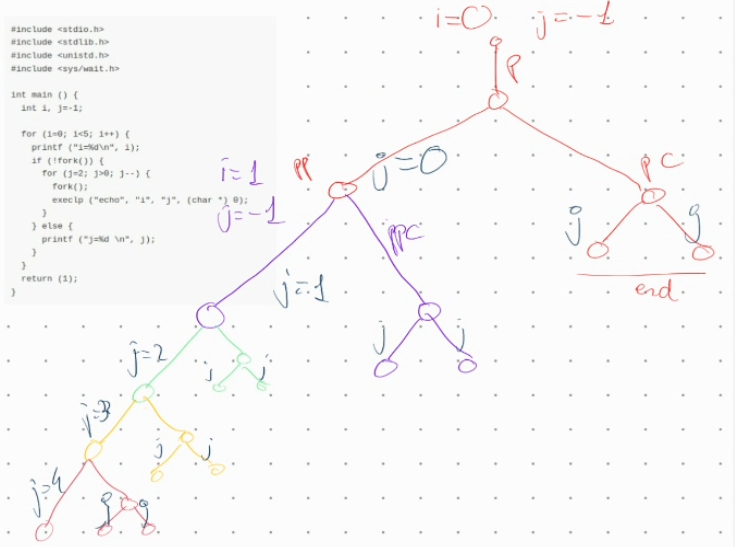 #include <stdio.h>
#include <stdlib.h>
#include <unistd.h>
#include <sys/wait.h>
int main () {
int i, j=-1;
for (i=0; i<5; i++) {
printf ("i=%d\n", i);
if (!fork()) {
for (j=2; j>0; j--) {
fork();
execlp ("echo", "i", "j", (char *) 0);
}
} else {
printf ("j=%d \n", j);
}
}
return (1);
}
i=0 j=-1
P
PP
j=0
PC
i=1
j=-1
PPC
j j
end
j=1
j j
j=2
j j
j=3
j j
j=4